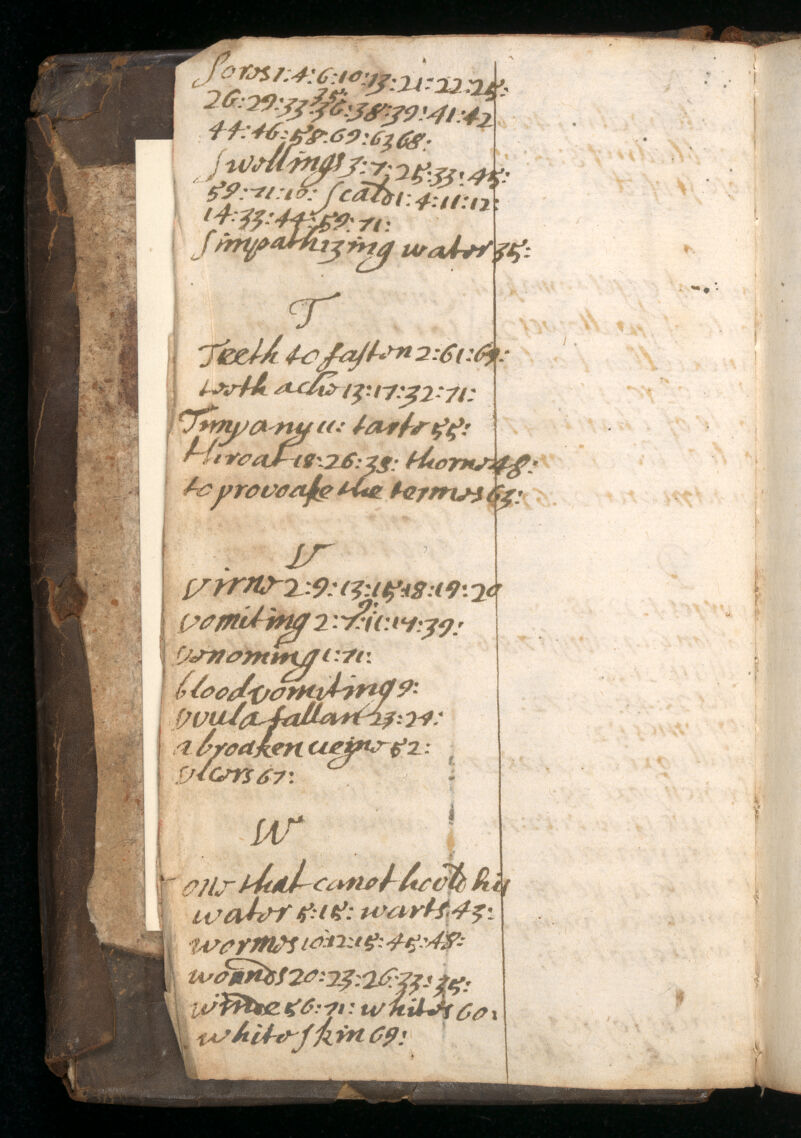 Sores 1: 4: 6: 10: 13: 21: 22: 25:
26: 29: 33: 35: 36: 38: 39: 41: 42
44: 46: 58: 69: 63 68:
Swellings 3: 7: 25: 33: 45:
59: 71: 10: Scald 1: 4: 11: 12:
14: 33: 44: 59: 71:
Simpathizing water 35:
T
Teeth to fasten 2: 61: 69:
tooth ache 13: 17: 32: 71:
Timpany 11: tarte 55:
throat 18: 26: 39: thorne 48:
to provoake the termes 63:
V
Virne 2: 9: 13: 15: 18: 19: 20
vomiting 2: 7: 9: 11: 14: 39:
venoming 1: 71:
blood vomiting 9:
vvula fallan 23: 24:
a broaken veyne 52:
vlcers 67:
W
one that canot hoold his
water 5: 15: warts 43:
wormes 10: 12: 15: 45: 48:
wounds 20: 23: 26: 33: 35:
winde 56: 71: whites 60:
white skin 69: